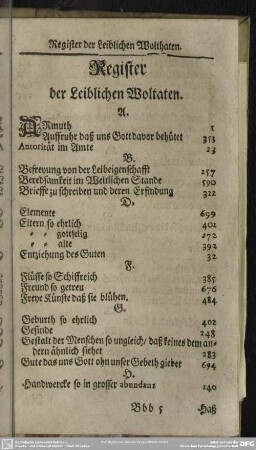 Register der Leiblichen Wolthaten.
Register
der Leiblichen Woltaten.
A.
ARmuth 1
Auffruhr daß uns Gott davor behütet 353
Autorität im Amte 23
B.
Befreyung von der Leibeigenschafft 257
Beredsamkeit im Weltlichen Stande 590
Brieffe zu schreiben und deren Erfindung 322
D.
Elemente 699
Eltern so ehrlich 402
" " gottselig 272
" " alte 392
Entziehung des Guten 32
F.
Flüsse so Schiffreich 385
Freund so getreu 676
Freye Künste daß sie blühen. 484
G.
Geburth so ehrlich 402
Gesinde 248
Gestalt der Menschen so ungleich/ daß keines dem an-
dern ähnlich siehet 283
Gute das uns Gott ohn unser Gebeth giebet 694
H.
Handwercke so in grosser abundanz 140
Bbb 5 Haß